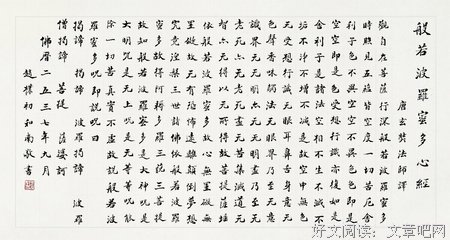 般若波羅蜜多心經
唐玄奘法師譯
觀自在菩薩行深般若波羅蜜多
時照見五蘊皆空度一切苦厄舍
利子色不異空空不異色色即是
空空即是色受想行識亦復如是
舍利子是諸法空相不生不滅不
垢不淨不增不減是故空中无色
无受想行識无眼耳鼻舌身意无
色聲香味觸法无眼界乃至无意
識界无无明亦无无明盡乃至无
老死亦无老死盡无苦集滅道无
智亦无得以无所得故菩提薩埵
依般若波羅蜜多故心无罣礙无
罣礙故无有恐怖遠離顛倒夢想
究竟涅槃三世諸佛依般若波羅
蜜多故得阿耨多羅三藐三菩提
故知般若波羅蜜多是大神咒是
大明咒是无上咒是无等等咒能
除一切苦真實不虛故說般若波
羅蜜多咒即說咒曰
揭諦揭諦 波羅揭諦 波羅
僧揭諦 菩提 薩婆訶
佛曆二五三七年九月
趙樸初和南敬書
好文阅读:文章吧网